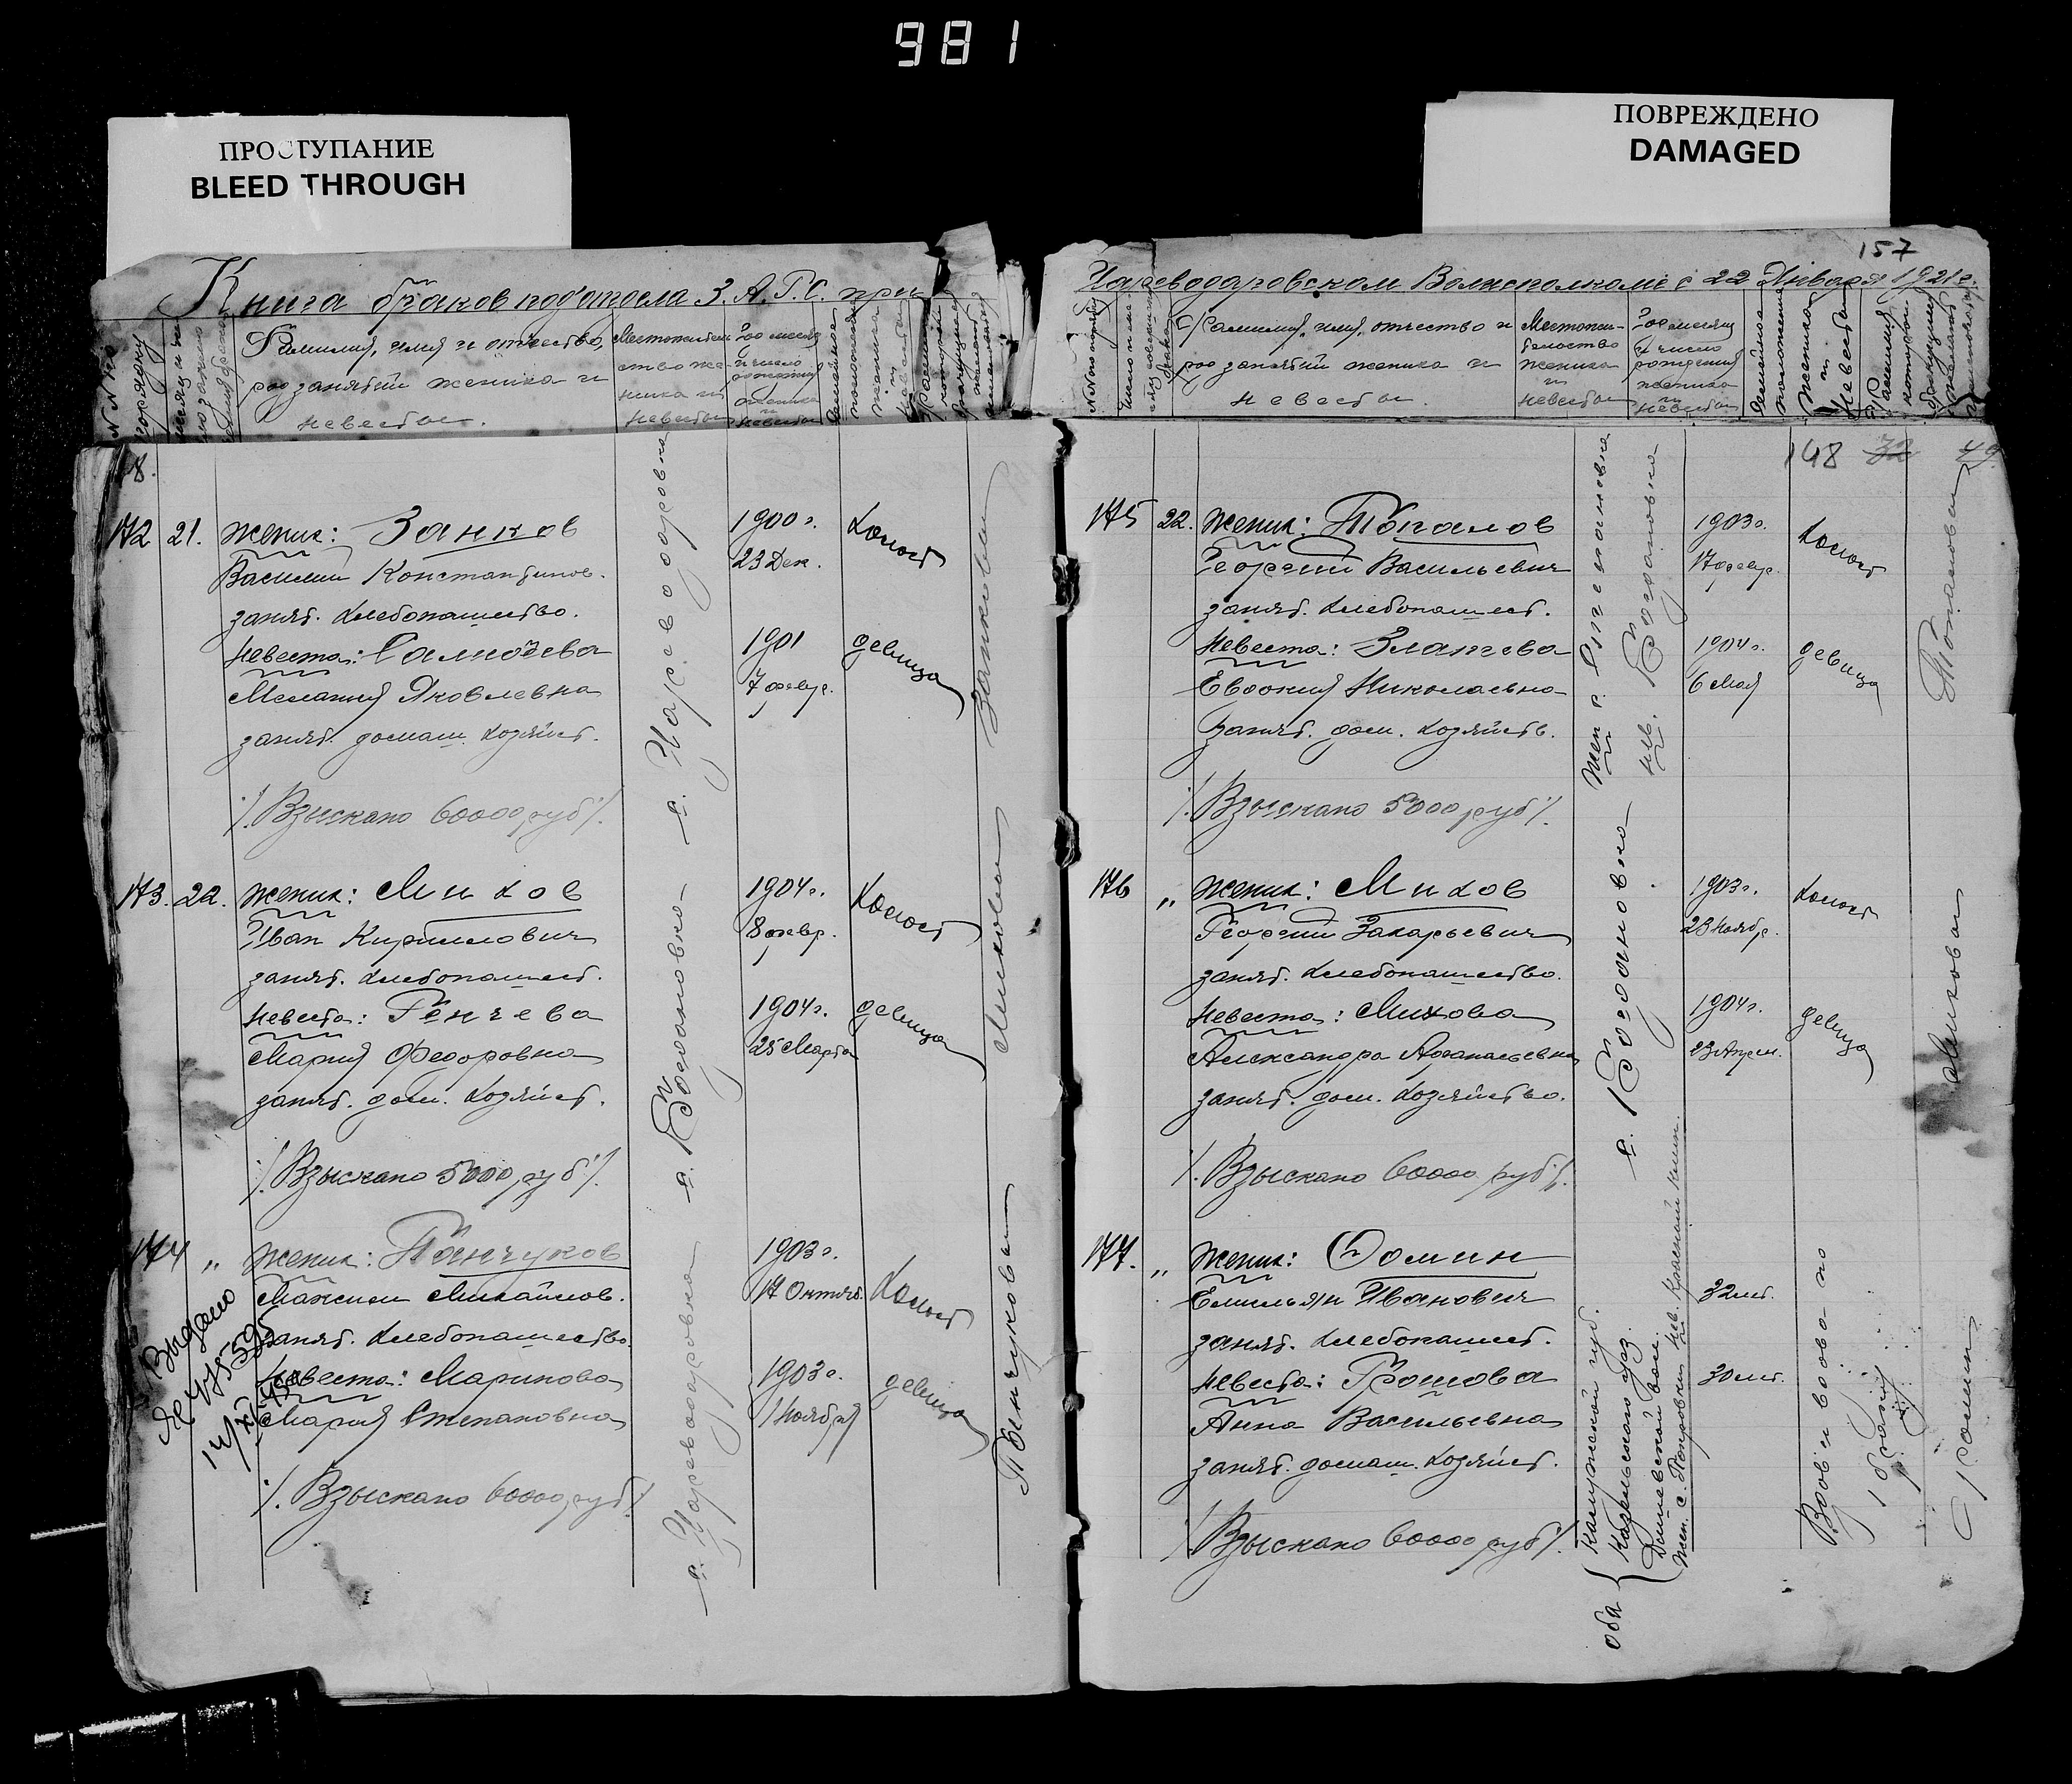 981
ПРОСТУПАНИЕ
BLEED THROUGH
ПОВРЕЖДЕНО
DAMAGED
Книга браков подотдела З.А.Г.С. при
№ № по порядку
Фамилия, имя и отчество,
род занятий жениха и
невесты.
Местожитель
ство же-
ниха и
невесты
Год месяц
и число
рождения
жениха
и
невесты
18.
172 21. Жених: Занков
Василий Константинов.
занят. хлебопашество.
Невеста: Самойлева
Мелания Яковлевна
занят. домаш. хозяйст.
/. Взыскано 60000 руб /.
с. Цареводаровка
1900 г.
23 Дек.
1901
7 февр.
холост
девица
Занковы
173. 22. Жених: Михов
Иван Кириллович
занят. хлебопашест.
Невеста: Генчева
Мария Федоровна
занят. дом. хозяйст.
/. Взыскано 5000 руб /.
с. Богдановка
1904 г.
8 февр.
1904 г.
25 Марта
холост
девица
Миховы
174 „ Жених: Пенчуков
Максим Михайлов.
занят. хлебопашество.
Невеста: Маринова
Мария Степановна
/. Взыскано 60000 руб /.
Выдано
с. Цареводаровка
1903 г.
17 Октяб.
1903 г.
1 Ноября
холост
девица
Пенчуковы
157
Цареводаровском Волисполкоме с 22 Января 1921 г.
Фамилия, имя, отчество и
род занятий жениха и
невесты.
Местожи-
тельство
жениха
и
невесты
Год месяц
и число
рождения
жениха
и
невесты
Семейное
положение
жениха
и
невесты
148 32 49
175 22. Жених: Топалов
Георгий Васильевич
занят. хлебопашест.
Невеста: Златева
Евдокия Николаевна
Занят. дом. хозяйств.
/. Взыскано 5000 руб /.
нев. Богдановка
1903 г.
17 февр.
1904 г.
6 Мая
холост
девица
Топаловы
176 „ Жених: Михов
Георгий Захарьевич
занят. хлебопашество.
Невеста: Михова
Александра Афанасьевна
занят. дом. хозяйство.
/. Взыскано 60000 руб /.
с. Богдановка
1903 г.
23 Ноябр.
1904 г.
23 Апрел.
холост
девица
Миховы
177. „ Жених: Фомин
Емильян Иванович
занят. хлебопашест.
Невеста: Громова
Анна Васильевна
занят. домаш. хозяйст.
/. Взыскано 60000 руб /.
оба
Калужской губ.
уез.
вол.
Жен. с. Покровки нев.
32 лет.
30 лет.
Вдов и вдова по
1 браку
Фомин